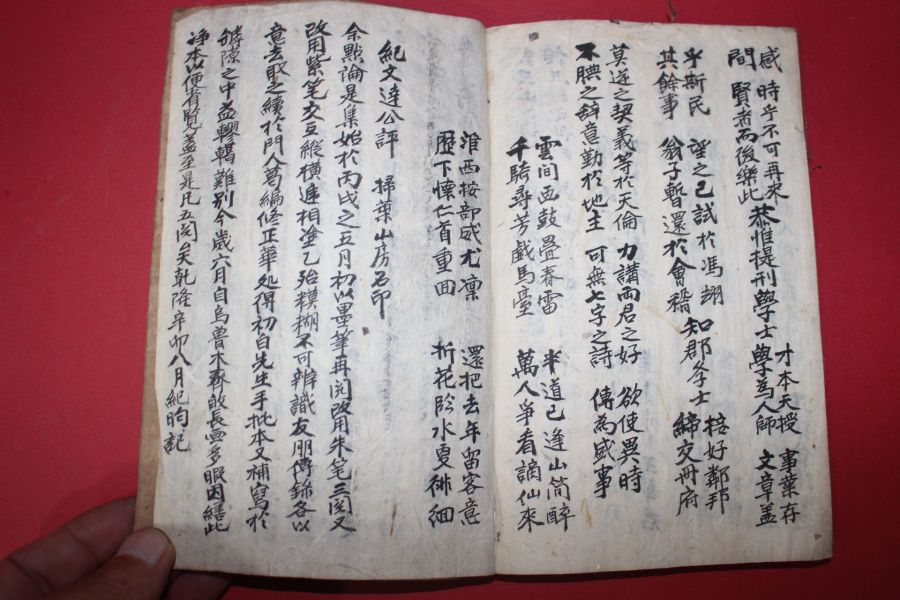 感 時乎不可再來 才本天授 事業存
間 賢者而後樂此 恭惟提刑學士 學為人師 文章蓋
乎斯民 望之已試於馮翊 棓好鄰邦
其餘事 翁子暫還於會稽 知郡學士 締交冊府
莫逆之契義等於天倫 力講兩君之好 欲使異時
不腆之辞意勤於地主 可無七字之詩 傳為盛事
雲間画鼓疊春雷 半道已逢山简醉
千騎尋芳戲馬臺 萬人爭看謫仙來
淮西按部威尤凜 還把去年留客意
歷下懷仁首重回 折花臨水更徘徊
紀文達公評 掃葉山房石印
余點論是集始於丙戌之五月初以墨筆再閱改用朱笔三閱又
改用紫笔交互縱橫遞相塗乙殆糢糊不可辨識友朋傳錄各以
意去取之續於門人葛編修正華処得初白先生手批本又補寫於
罅隙之中益轇轕難別今歲六月自烏魯木齊啟長晝多暇因繕此
净本以便省覽蓋至是凡五閱矣乾隆辛卯八月紀昀記